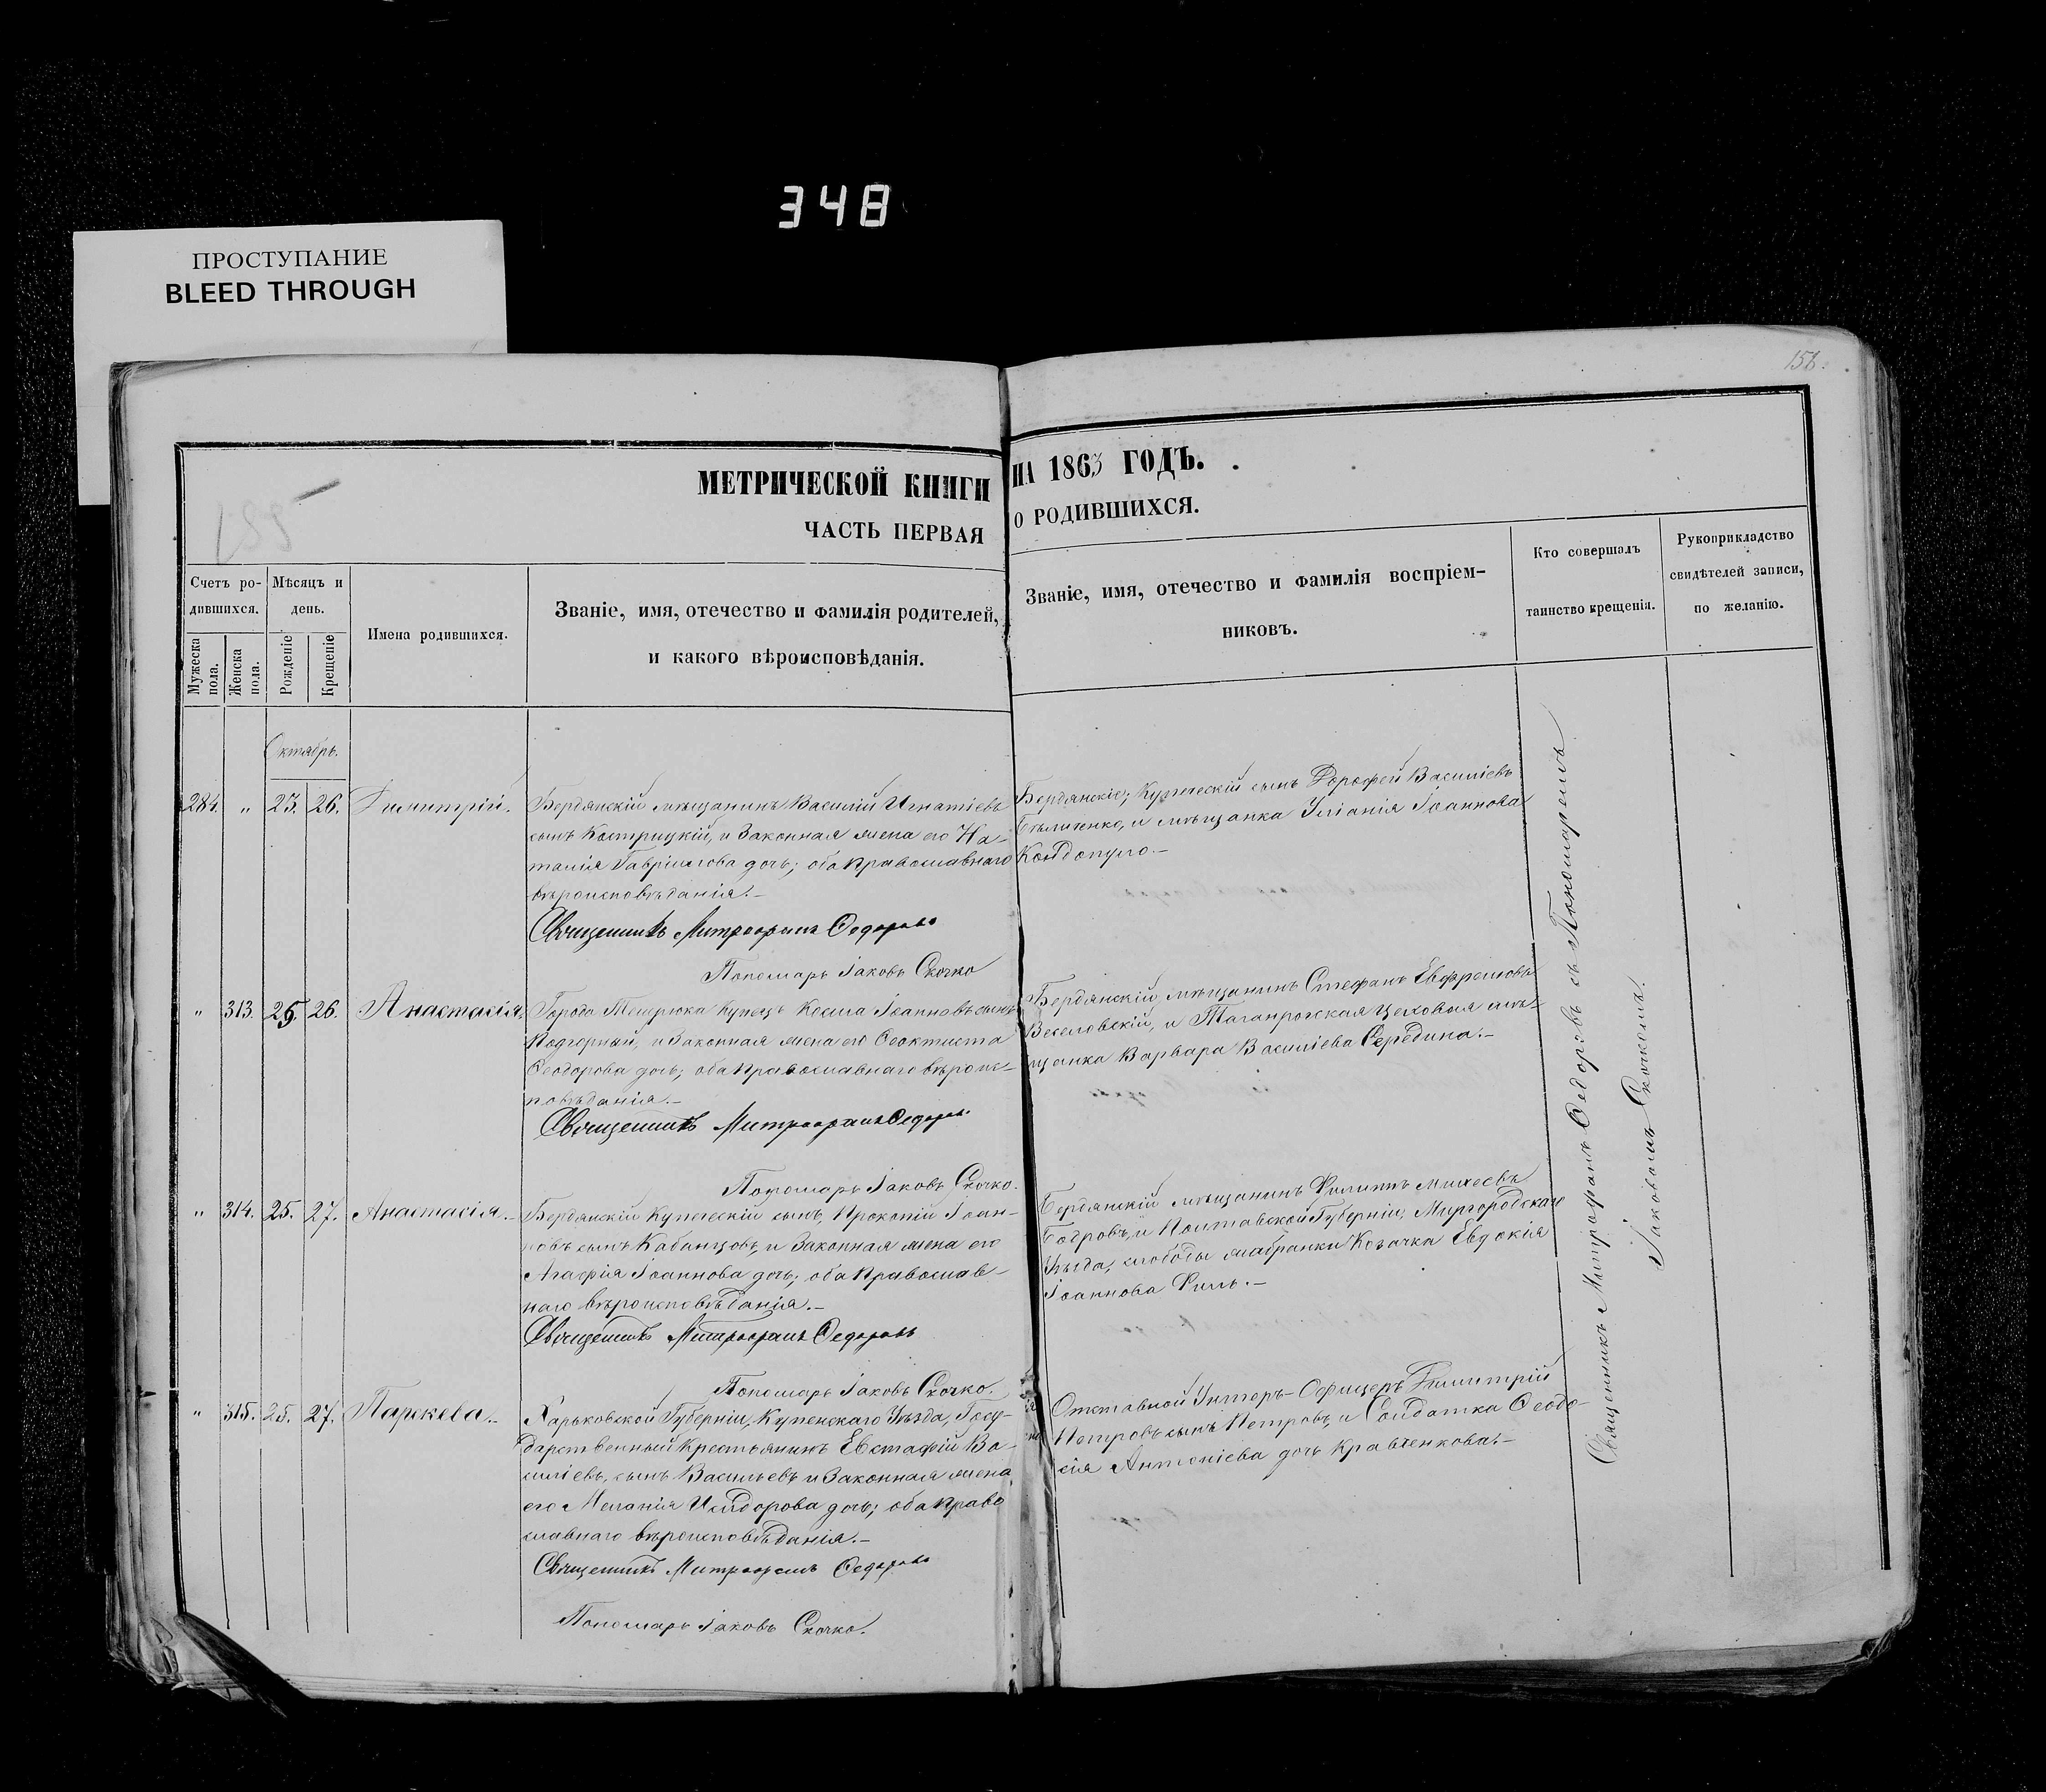 348
ПРОСТУПАНИЕ
BLEED THROUGH
156.
МЕТРИЧЕСКОЙ КНИГИ НА 1863 ГОДЪ.
ЧАСТЬ ПЕРВАЯ О РОДИВШИХСЯ.
Счетъ ро-
дившихся.
Мужеска пола.
Женска пола.
Мѣсяцъ и
день.
Рожденіе
Крещеніе
Имена родившихся.
Званіе, имя, отечество и фамилія родителей,
и какого вѣроисповѣданія.
Званіе, имя, отечество и фамилія воспріем-
никовъ.
Кто совершалъ
таинство крещенія.
Рукоприкладство
свидѣтелей записи,
по желанію.
Октябрь.
284. " 23. 26. Димитрій.
Бердянскій мѣщанинъ Василій Игнатіевъ
сынъ Кострицкій, и Законная жена его На-
талія Гавріилова дочь; оба Православнаго
вѣроисповѣданія.-
Священникъ Митрофанъ Федоровъ
Пономарь Іаковъ Скочко
Бердянскіе; Купеческій сынъ Дорофей Василіевъ
Бѣличенко, и мѣщанка Уліанія Іоаннова
Кондопуло.-
" 313. 25. 26. Анастасія.
Города Темрюка Купецъ Косма Іоанновъ сынъ
Подгорный, и Законная жена его Ѳеоктиста
Ѳеодорова дочь; оба Православнаго вѣроис-
повѣданія.-
Священникъ Митрофанъ Федоровъ
Пономарь Іаковъ Скочко.
Бердянскій мѣщанинъ Стефанъ Евфремовъ
Веселовскій, и Таганрогская Цеховая мѣ-
щанка Варвара Василіева Середина.-
" 314. 25. 27. Анастасія.-
Бердянскій Купеческій сынъ, Прокопій Іоан-
новъ сынъ Кабанцовъ, и Законная жена его
Агафія Іоаннова дочь; оба Православ-
наго вѣроисповѣданія.-
Священникъ Митрофанъ Федоровъ
Пономарь Іаковъ Скочко.
Бердянскій мѣщанинъ Филиппъ Михеевъ
Бобровъ, и Полтавской Губерніи, Миргородскаго
Уѣзда, слободы Козачка Евдокія
Іоаннова
" 315. 25. 27. Параскева.-
Харьковской Губерніи, Купенскаго Уѣзда, Госу-
дарственный Крестьянинъ Евстафій Ва-
силіевъ, сынъ Васильевъ и Законная жена
его Меланія Исидорова дочь; оба Право
славнаго вѣроисповѣданія.-
Священникъ Митрофанъ Федоровъ
Пономарь Іаковъ Скочко.
Отставной Унтеръ-Офицеръ Димитрій
Петровъ сынъ Петровъ, и Солдатка Ѳеодо-
сія Антоніева дочь Кравченкова.-
Священникъ Митрофанъ Ѳедоровъ съ Пономаремъ
Іаковомъ Скочкомъ.